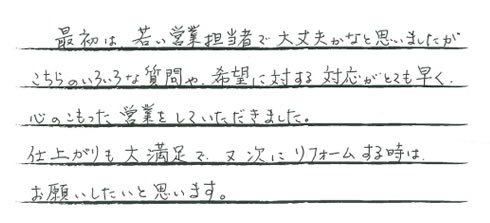 最初は、若い営業担当者で大丈夫かなと思いましたが
こちらのいろいろな質問や、希望に対する対応がとても早く、
心のこもった営業をしていただきました。
仕上がりも大満足で、又次にリフォームする時は、
お願いしたいと思います。